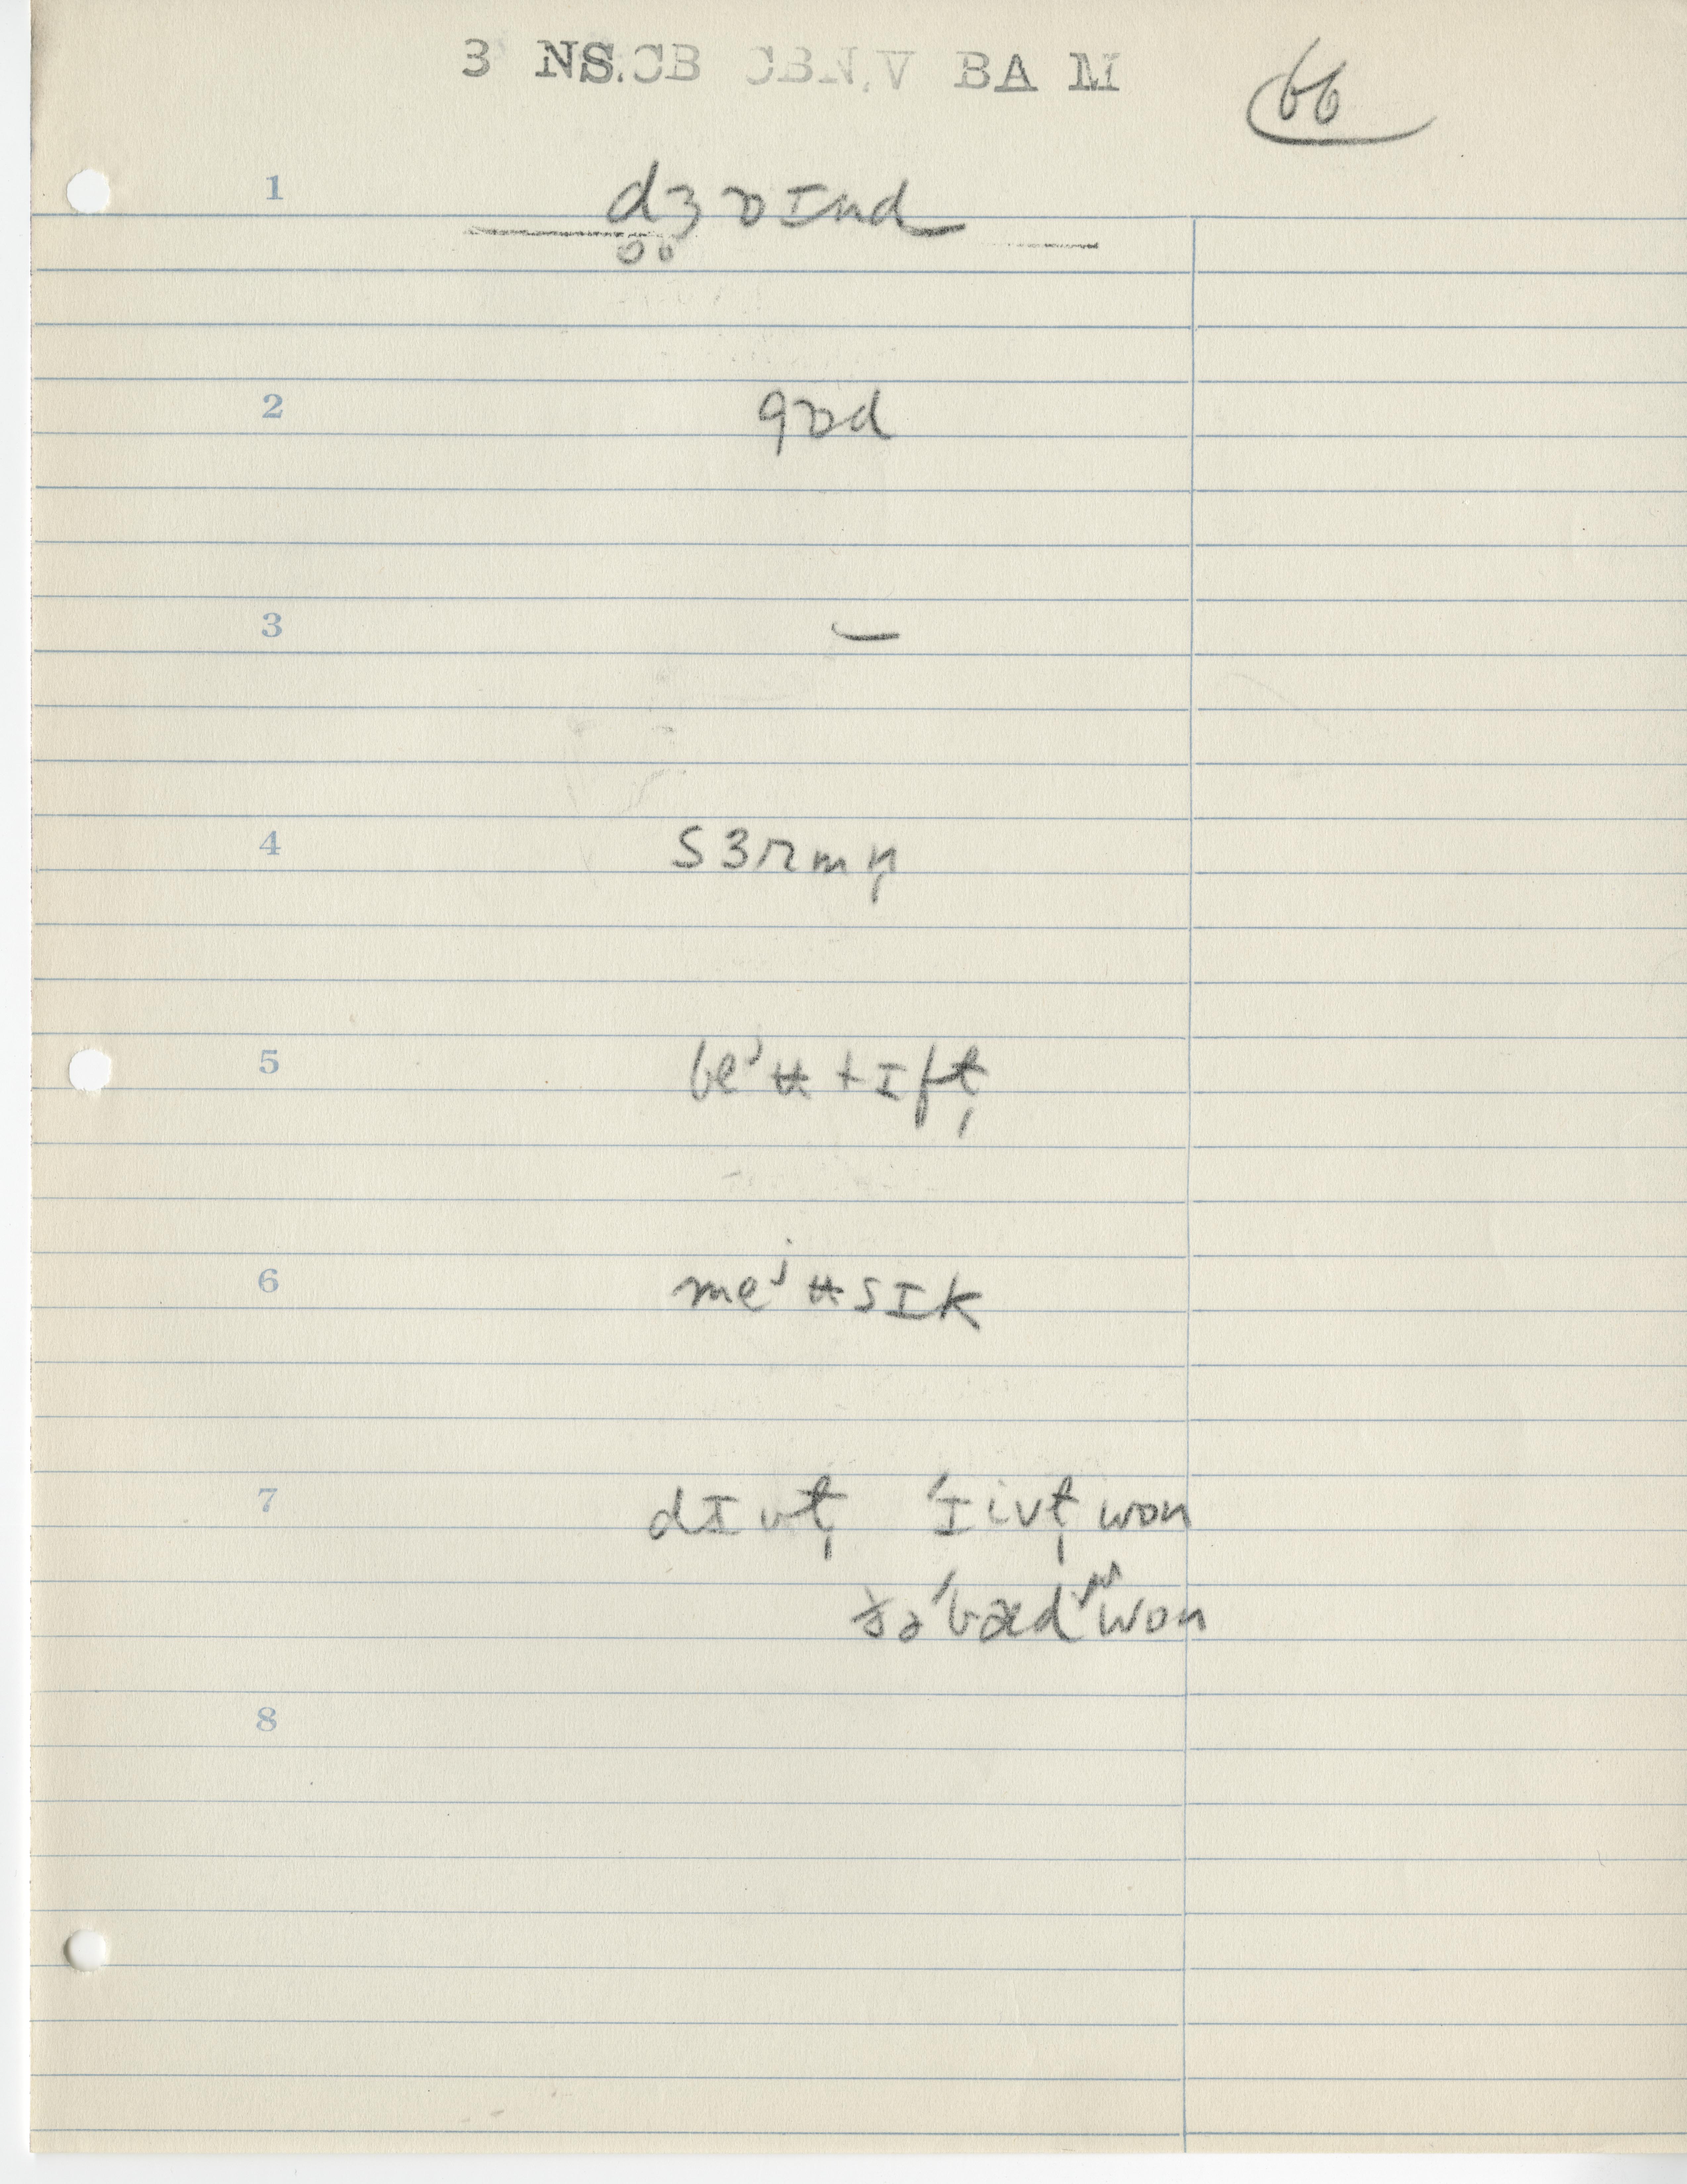 3 NS.CB CBN.V BA M
66
1 dʒɒɪnd
2 gɒd
3 –
4 sɜrmn̩
5 beʲʉtɪft̩
6 meʲʉsɪk
7 dɪvt̩ ˈɪivt̩ wɒn
won
8